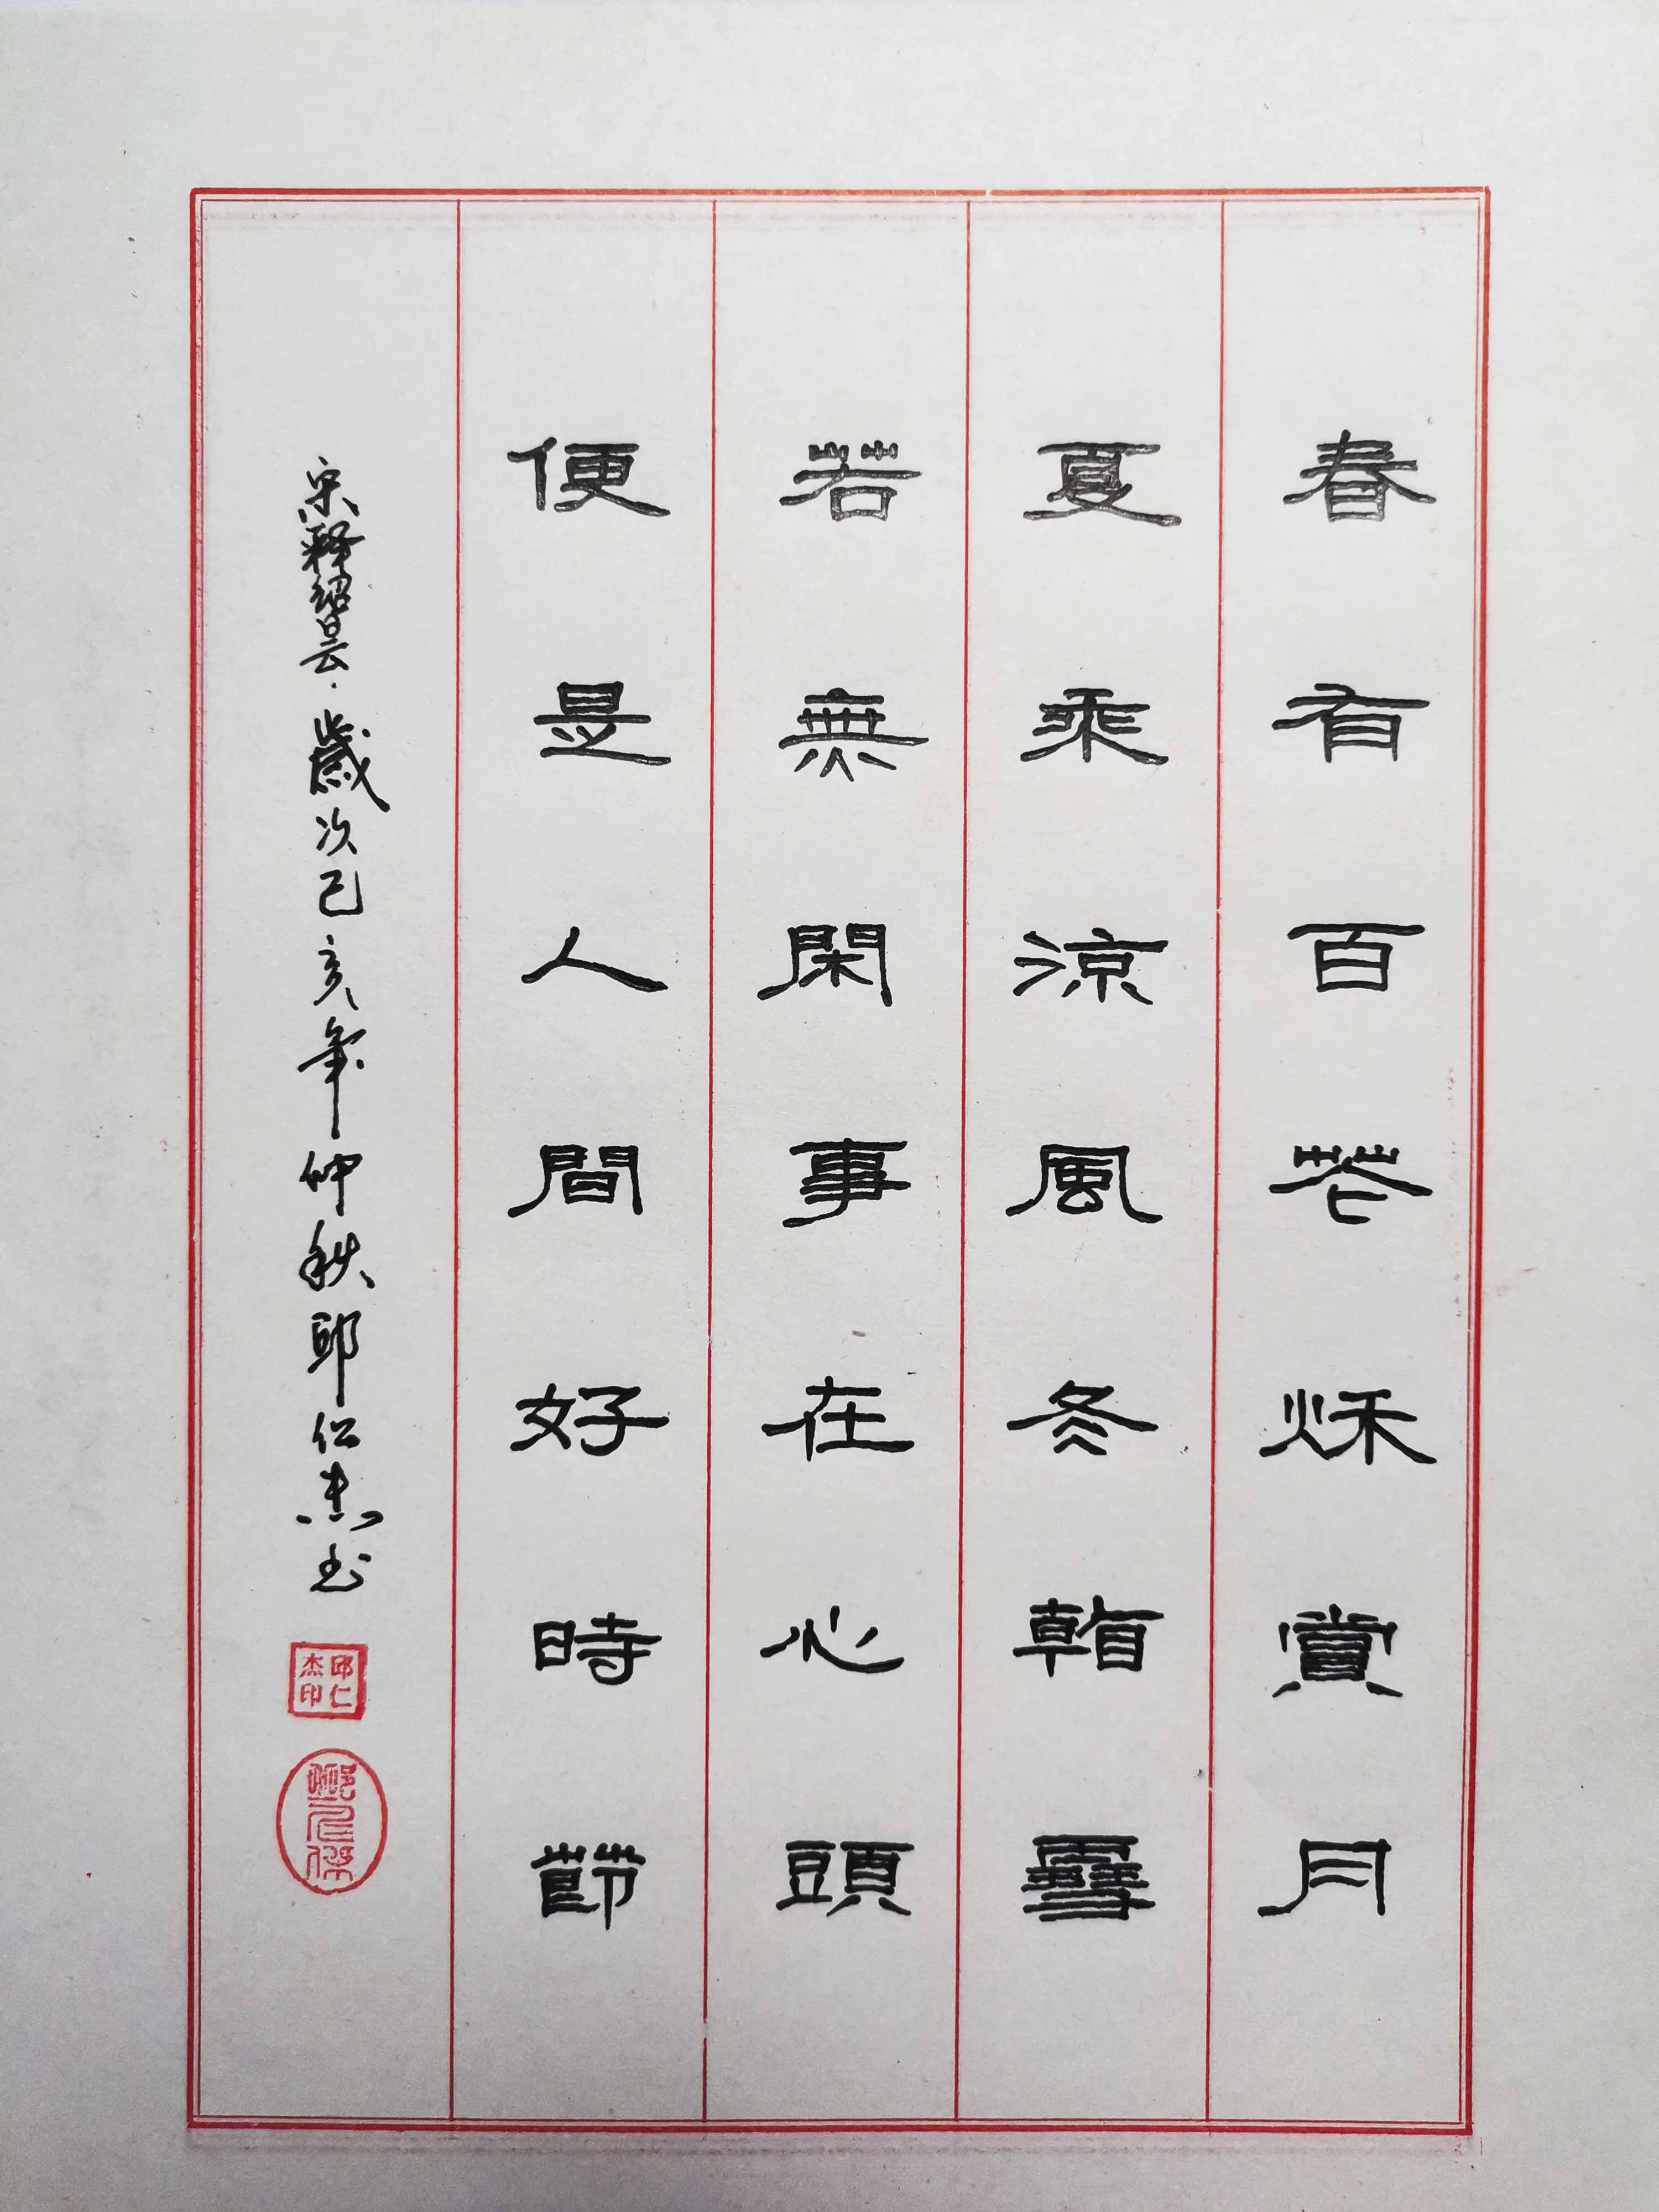 春有百花秌賞月
夏乘涼風冬翫雪
若無閑事在心頭
便是人間好時節
宋釋紹曇·歲次己亥年仲秋邱仁杰书
邱仁杰印